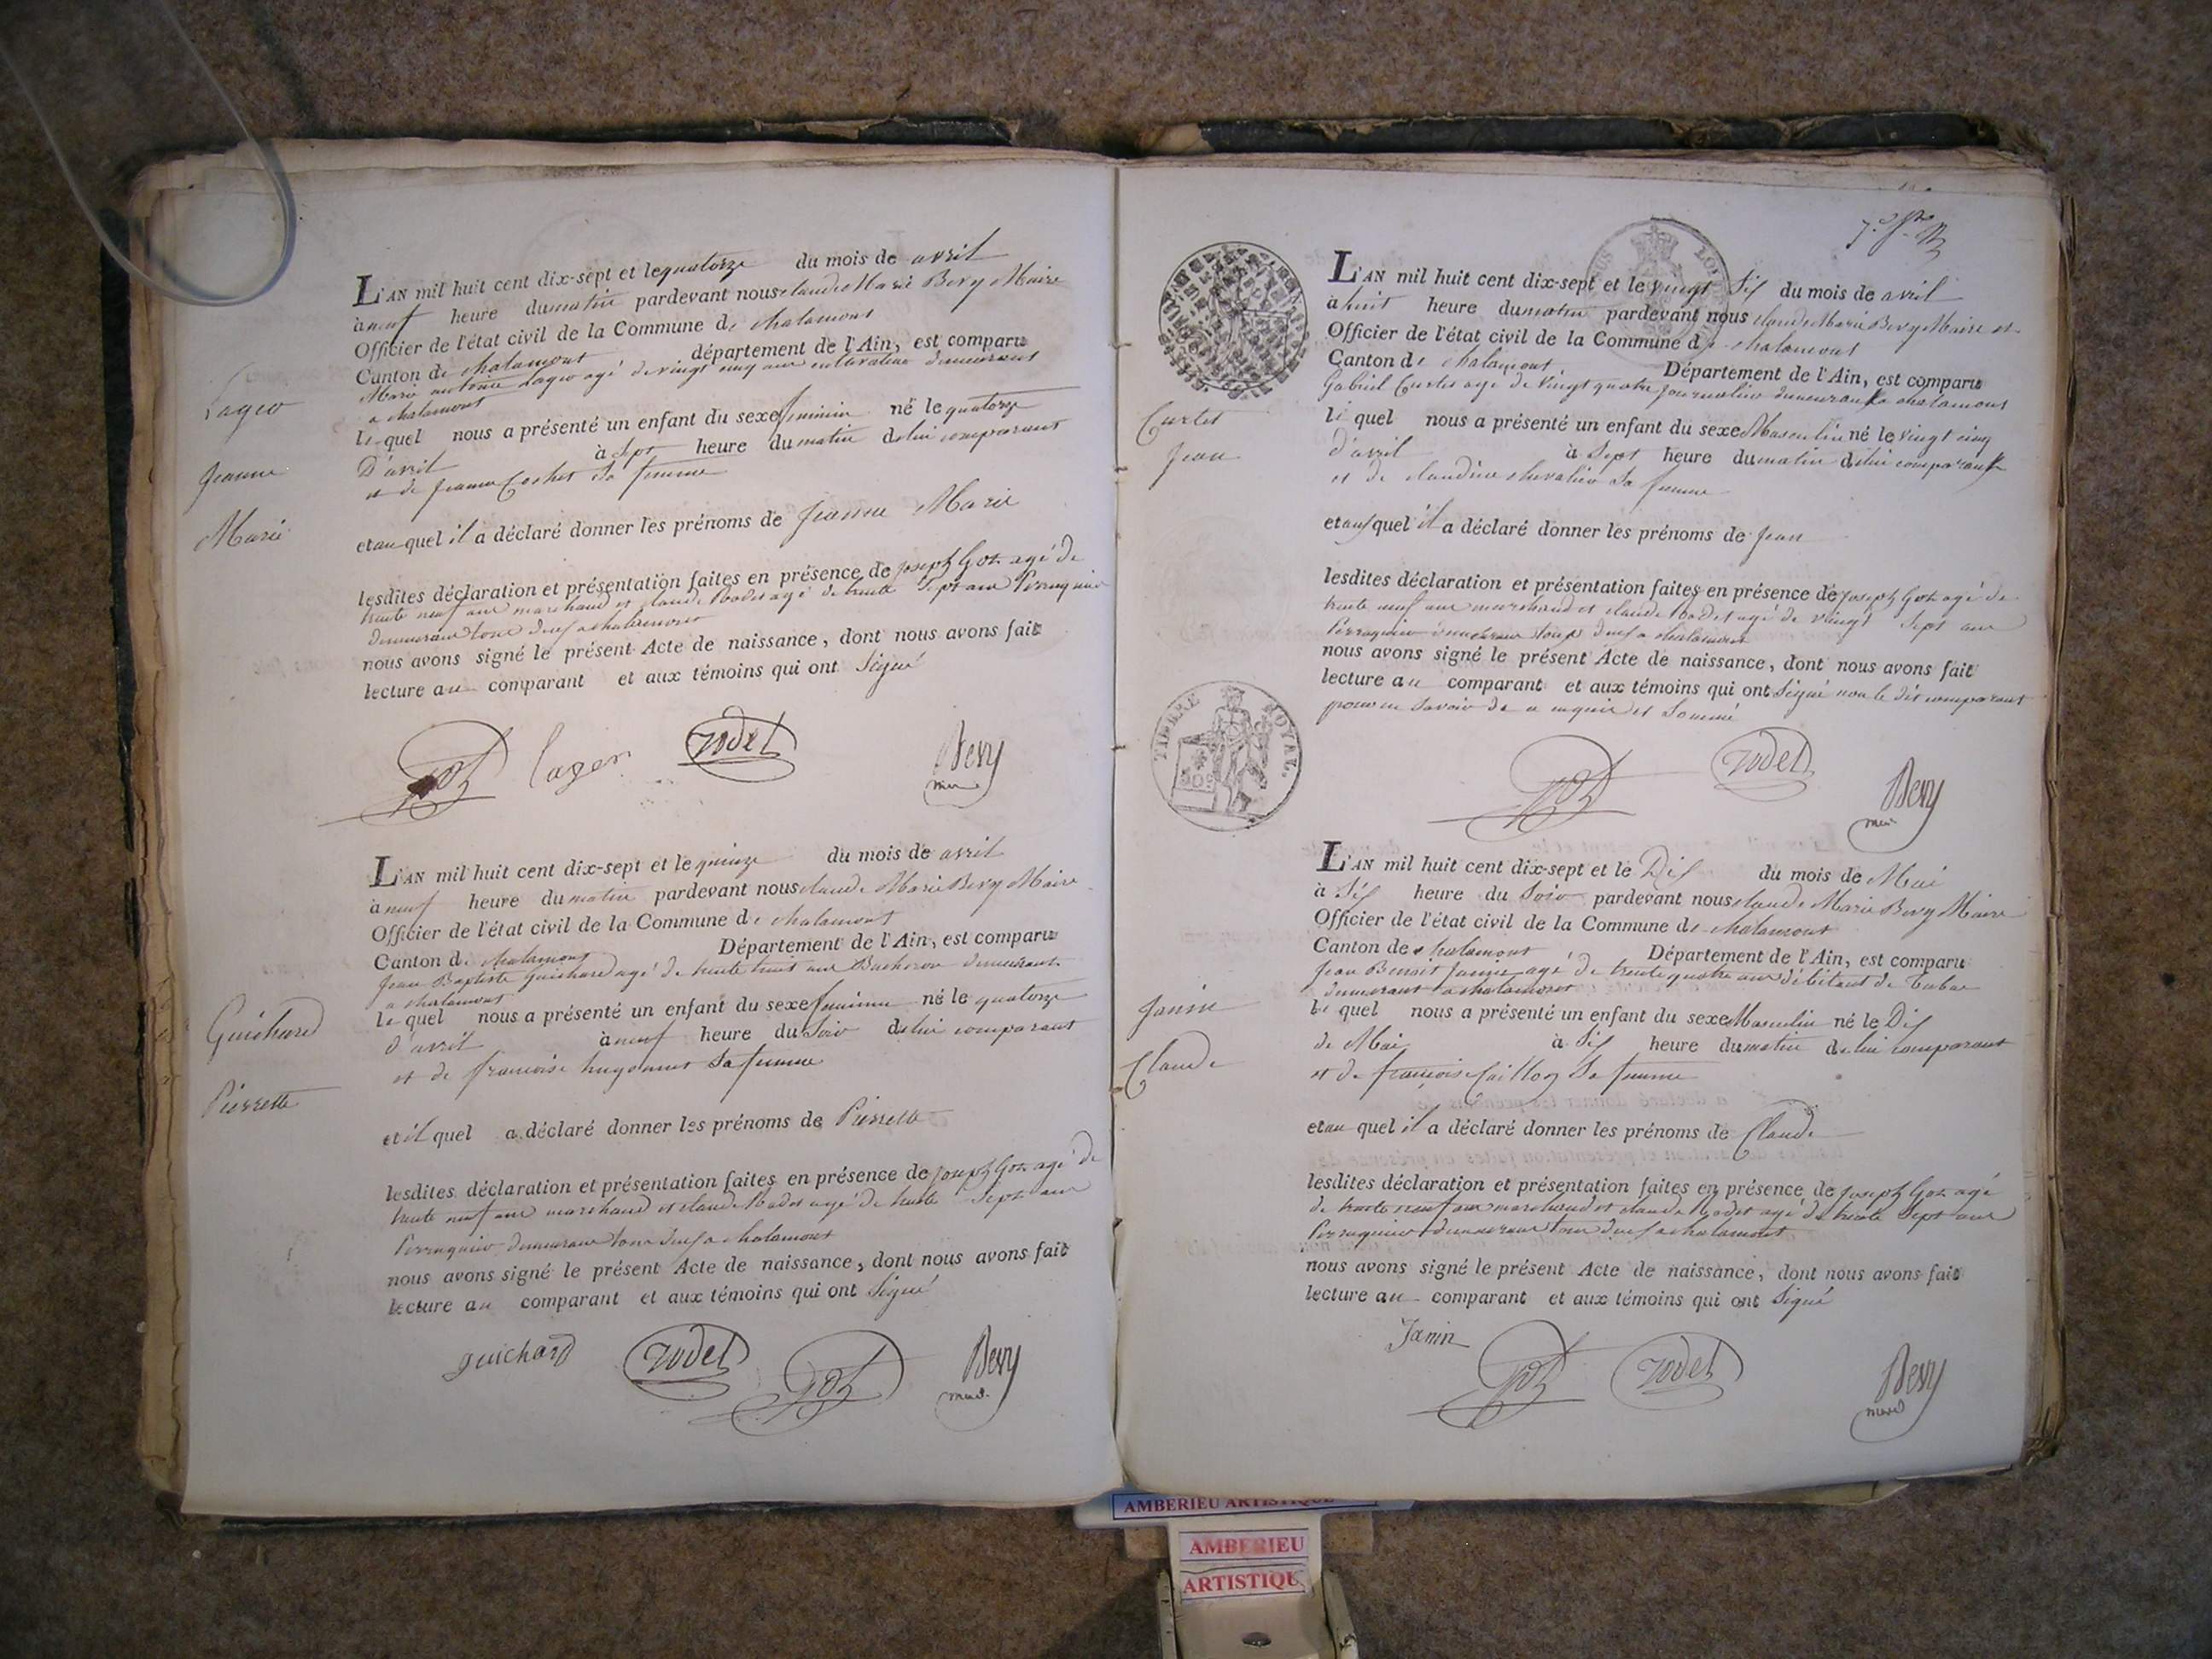 Lager
Jeanne
Marie
L'AN mil huit cent dix-sept et le quatorze du mois de avril
à neuf heure du matin pardevant nous claude Marie Bevy Maire
Officier de l'état civil de la Commune de chalamont
Canton de chalamont département de l'Ain, est comparu
Marie antoine Lager agé de vingt cinq ans demeurant
a chalamont
le quel nous a présenté un enfant du sexe feminin né le quatorze
D'avril à Sept heure du matin de lui comparant
et de jeanne Cochet Sa femme
et au quel il a déclaré donner les prénoms de jeanne Marie
lesdites déclaration et présentation faites en présence de joseph Goz agé de
trente neuf ans marchand et claude Rodet agé de trente Sept ans Perruquier
demeurans tous deux a chalamont
nous avons signé le présent Acte de naissance, dont nous avons fait
lecture au comparant et aux témoins qui ont Signé
goz lager rodet Bevy
Guichard
Pierrette
L'AN mil huit cent dix-sept et le quinze du mois de avril
à neuf heure du matin pardevant nous claude Marie Bevy Maire
Officier de l'état civil de la Commune de chalamont
Canton de chalamont Département de l'Ain, est comparu
jean Baptiste Guichard agé de trente huit ans demeurant
a chalamont
le quel nous a présenté un enfant du sexe feminin né le quatorze
d'avril à neuf heure du Soir de lui comparant
et de francoise hugonnet Sa femme
et il quel a déclaré donner les prénoms de Pierrette
lesdites déclaration et présentation faites en présence de joseph Goz agé de
trente neuf ans marchand et claude Rodet agé de trente Sept ans
Perruquier demeurans tous deux a chalamont
nous avons signé le présent Acte de naissance, dont nous avons fait
lecture au comparant et aux témoins qui ont Signé
guichard rodet goz Bevy
Curtet
Jean
L'AN mil huit cent dix-sept et le vingt Six du mois de avril
à huit heure du matin pardevant nous claude Marie Bevy Maire et
Officier de l'état civil de la Commune de chalamont
Canton de chalamont Département de l'Ain, est comparu
Gabriel Curtet agé de vingt quatre journalier demeurant a chalamont
le quel nous a présenté un enfant du sexe Masculin né le vingt cinq
d'avril à Sept heure du matin de lui comparant
et de claudine chevalier Sa femme
et au quel il a déclaré donner les prénoms de jean
lesdites déclaration et présentation faites en présence de joseph Goz agé de
trente neuf ans marchand et claude Rodet agé de vingt Sept ans
Perruquier demeurans tous deux a chalamont
nous avons signé le présent Acte de naissance, dont nous avons fait
lecture au comparant et aux témoins qui ont Signé non le dit comparant
pour ne Savoir de ce enquis et Sommé
TIMBRE ROYAL.
goz rodet Bevy
Janin
Claude
L'AN mil huit cent dix-sept et le Dix du mois de Mai
à Six heure du Soir pardevant nous claude Marie Bevy Maire
Officier de l'état civil de la Commune de chalamont
Canton de chalamont Département de l'Ain, est comparu
jean Benoit Janin agé de trente quatre ans débitant de tabac
demeurant a chalamont
le quel nous a présenté un enfant du sexe Masculin né le Dix
de Mai à Six heure du matin de lui comparant
et de françoise faillon Sa femme
et au quel il a déclaré donner les prénoms de Claude
lesdites déclaration et présentation faites en présence de joseph Goz agé
de trente neuf ans marchand et claude Rodet agé de trente Sept ans
Perruquier demeurans tous deux a chalamont
nous avons signé le présent Acte de naissance, dont nous avons fait
lecture au comparant et aux témoins qui ont Signé
Janin goz rodet Bevy
AMBERIEU ARTISTIQUE
AMBERIEU
ARTISTIQU